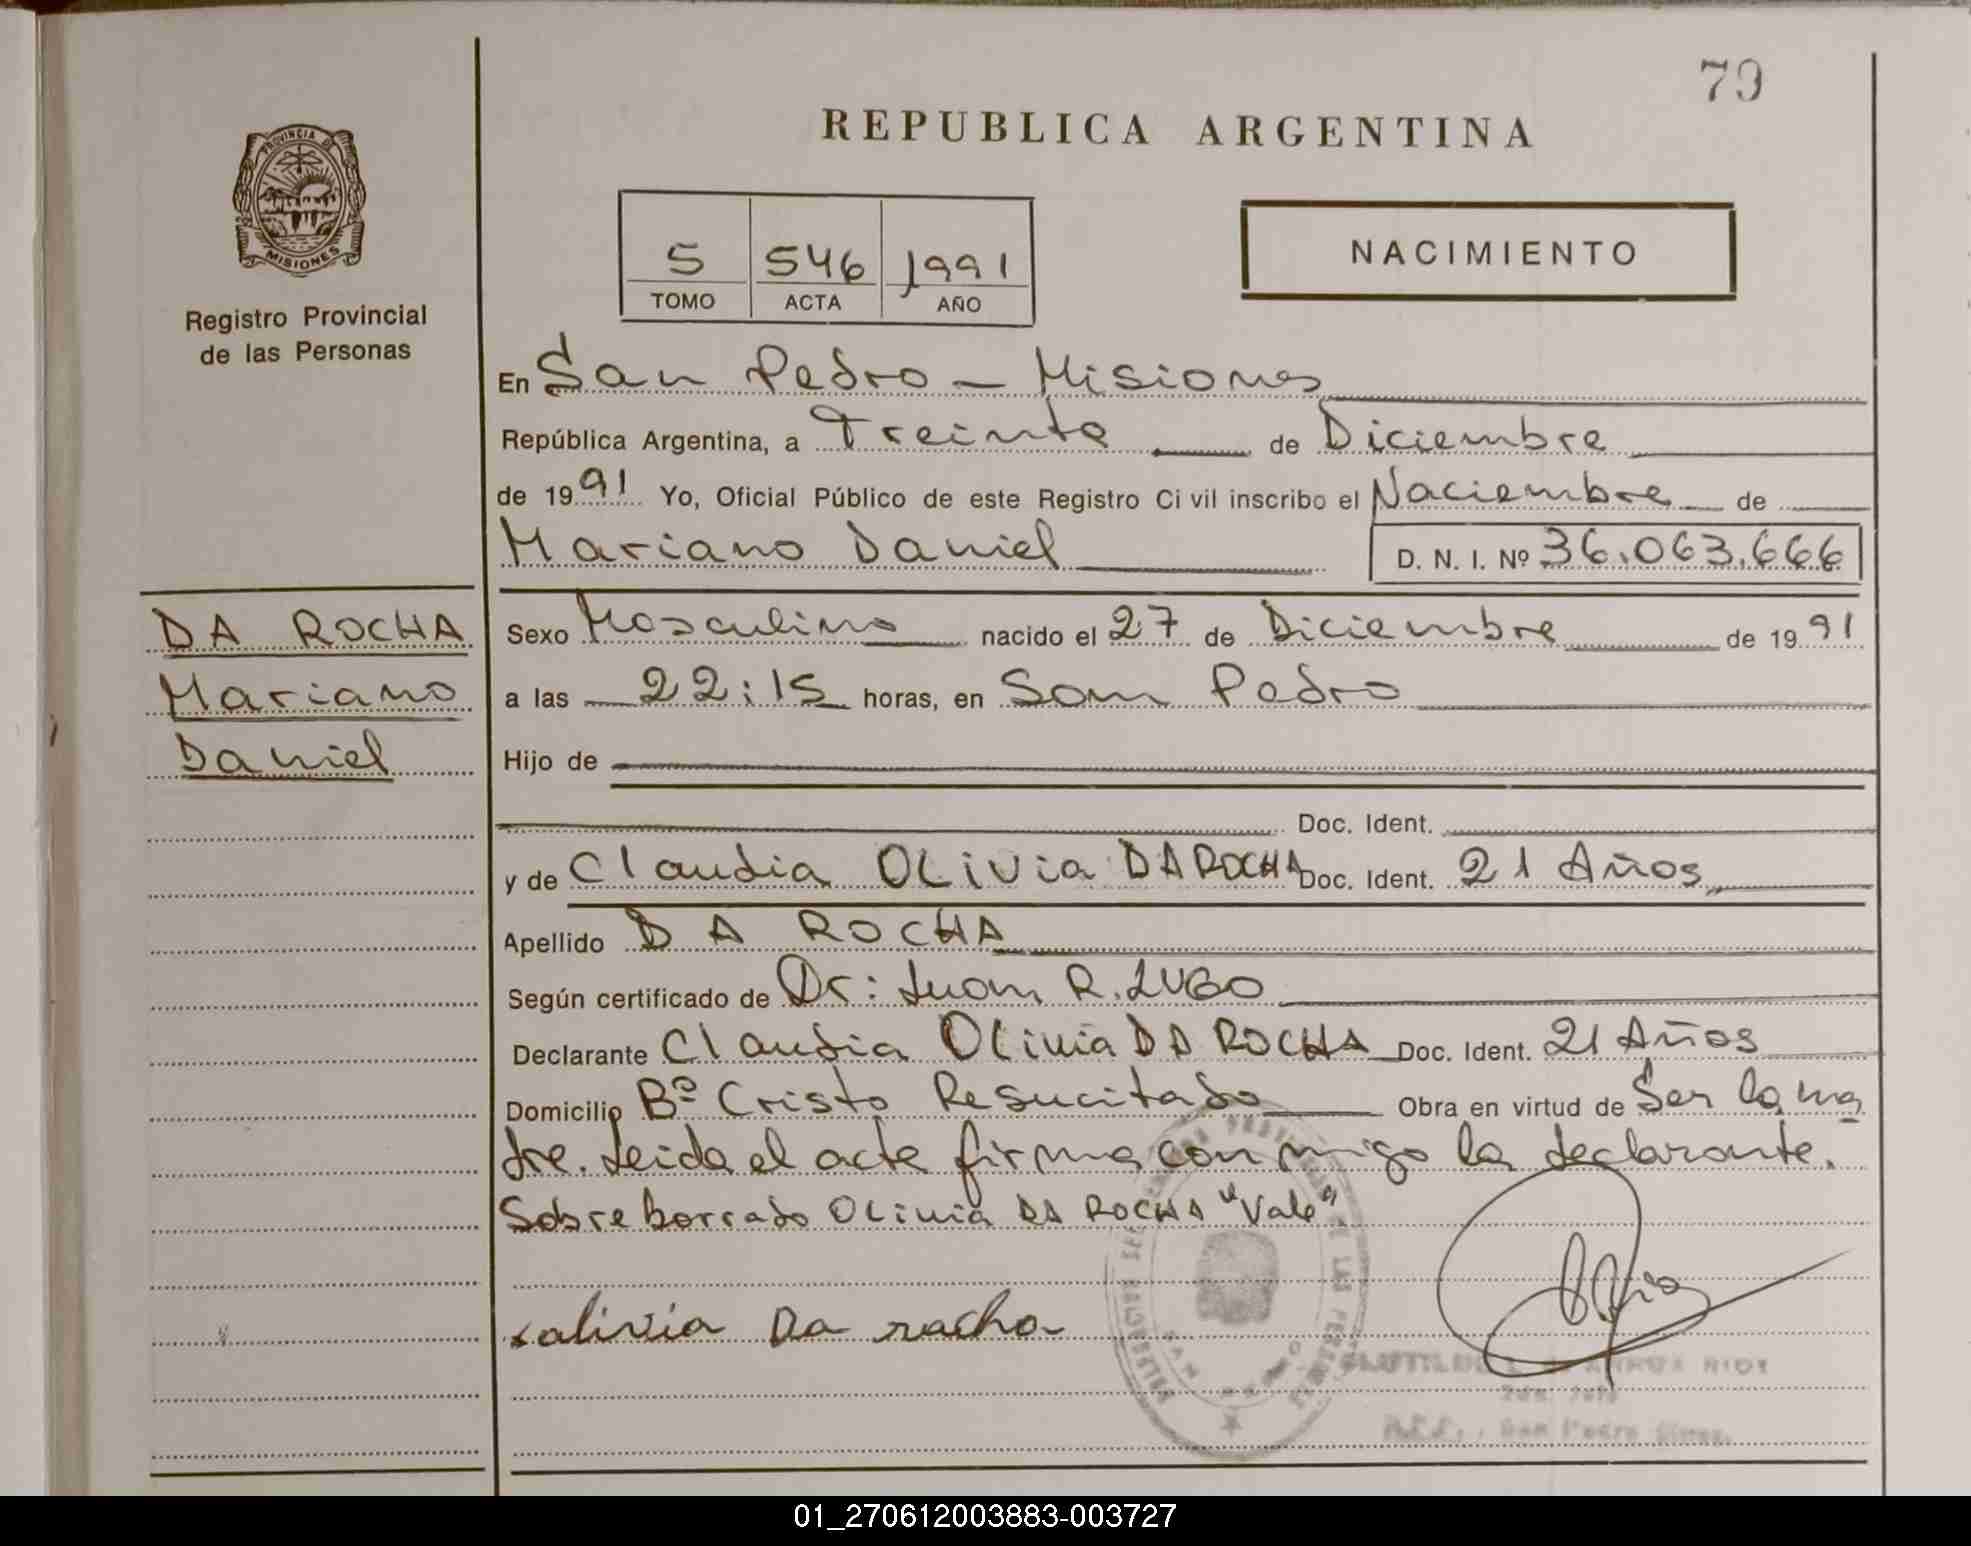 79
REPUBLICA ARGENTINA
PROVINCIA DE
MISIONES
Registro Provincial
de las Personas
5 546 1991
TOMO ACTA AÑO
NACIMIENTO
En San Pedro - Misiones
República Argentina, a Treinta de Diciembre
de 1991 Yo, Oficial Público de este Registro Civil inscribo el Naciembre de
Mariano Daniel D. N. I. Nº 36.063.666
DA ROCHA
Mariano
Daniel
Sexo Masculino nacido el 27 de Diciembre de 1991
a las 22:15 horas, en San Pedro
Hijo de
Doc. Ident.
y de Claudia OLiVia DA ROCHA Doc. Ident. 21 Años
Apellido DA ROCHA
Según certificado de Dr: Juan R. LUGO
Declarante Claudia OLivia DA ROCHA Doc. Ident. 21 Años
Domicilio Bº Cristo Resucitado Obra en virtud de Ser la ma
dre. Leida el acta firma con migo la declarante.
Sobre borrado OLivia DA ROCHA "Vale"
olivia Da racha
San Pedro
01_270612003883-003727